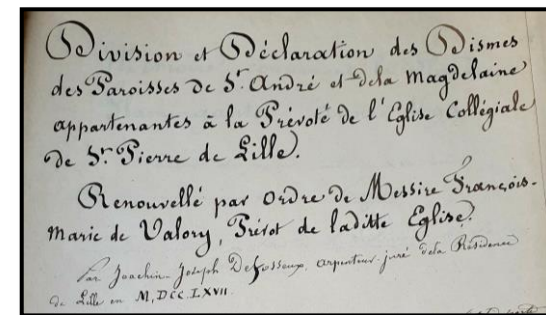 Division et Déclaration des Dismes
des Paroisses de St. André et dela Magdelaine
appartenantes à la Prévoté de l'Eglise Collégiale
de St. Pierre de Lille.
Renouvellé par ordre de Messire François-
Marie de Valory, Prévot de laditte Eglise.
Par Joachin Joseph arpenteur juré dela Résidence
de Lille en M,DCC.LXVII.